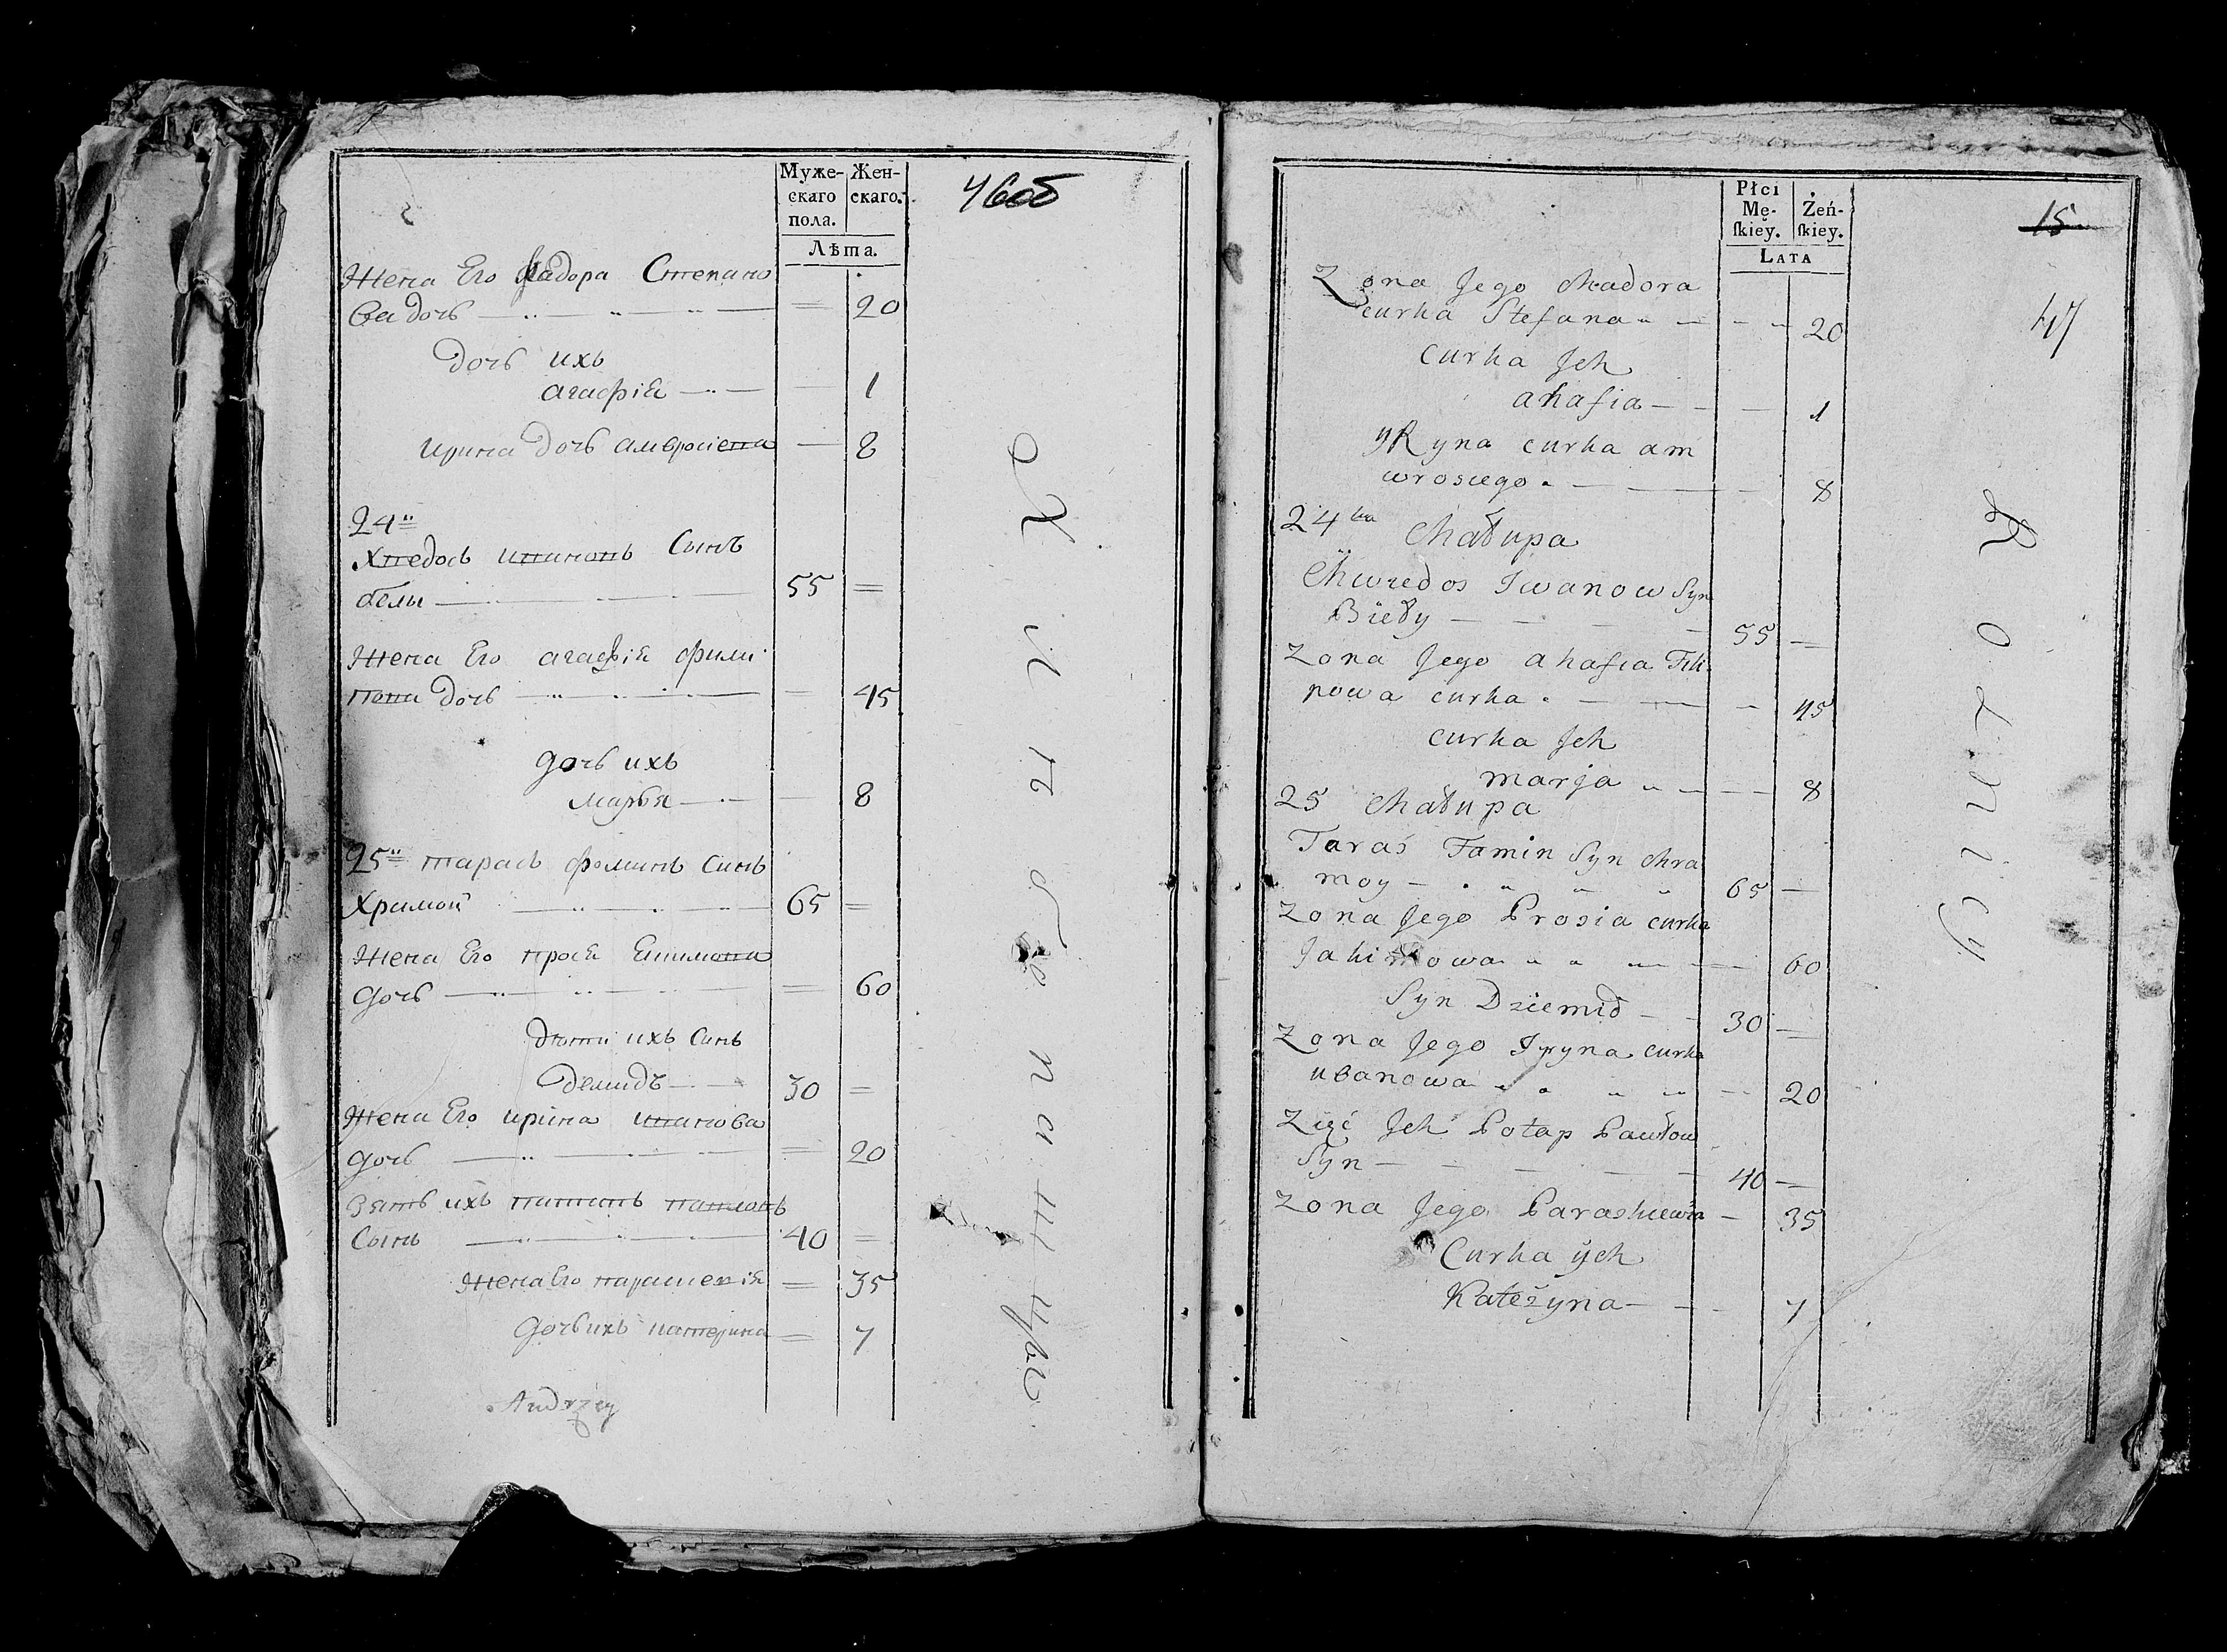 Муже-
скаго
пола.
Жен-
скаго.
Лѣта.
46об
Жена Его Хадора Степано
ва дочь 20
дочь ихъ
агафія 1
ирина дочь амвросиева 8
24
Хведосъ ивановъ Сынъ
белы 55
Жена Его агафія фили
пова дочь 45
дочь ихъ
марья 8
25 тарасъ фоминъ Синъ
Храмой 65
Жена Его прося
дочь 60
дѣти ихъ Синъ
демидъ 30
Жена Его ирина иванова
дочь 20
зять ихъ патапъ павловъ
Сынъ 40
Жена Его парашевія 35
дочь ихъ катерина 7
Andrzey
Płci
Mę-
ſkiey.
Żeń-
ſkiey.
LATA
15
47
Zona Jego Chadora
curka Stefana 20
Curka Jch
ahafia 1
yRyna curka am
wrosiego 8
24ta Chałupa
Chwiedos Iwanow Syn
Bieły 55
Zona Jego ahafia Fili
powa curka 45
curka Jch
marja 8
25 Chałupa
Taraś Famin Syn Chra
moy 65
Zona Jego Prosia curka
Jakimowa 60
Syn Dziemid 30
Zona Jego Iryna curka
uvanowa 20
Zięć Jch Potap Pawłow
Syn 40
Zona Jego Paraskiewia 35
Curka ÿch
Katežyna 7